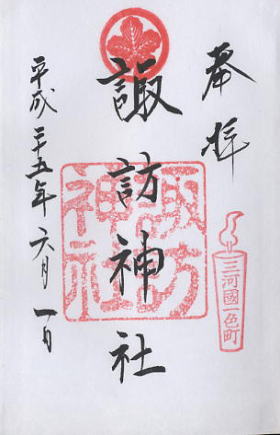 奉拝
諏訪神社
平成二十五年六月一日
諏訪神社
三河國一色町